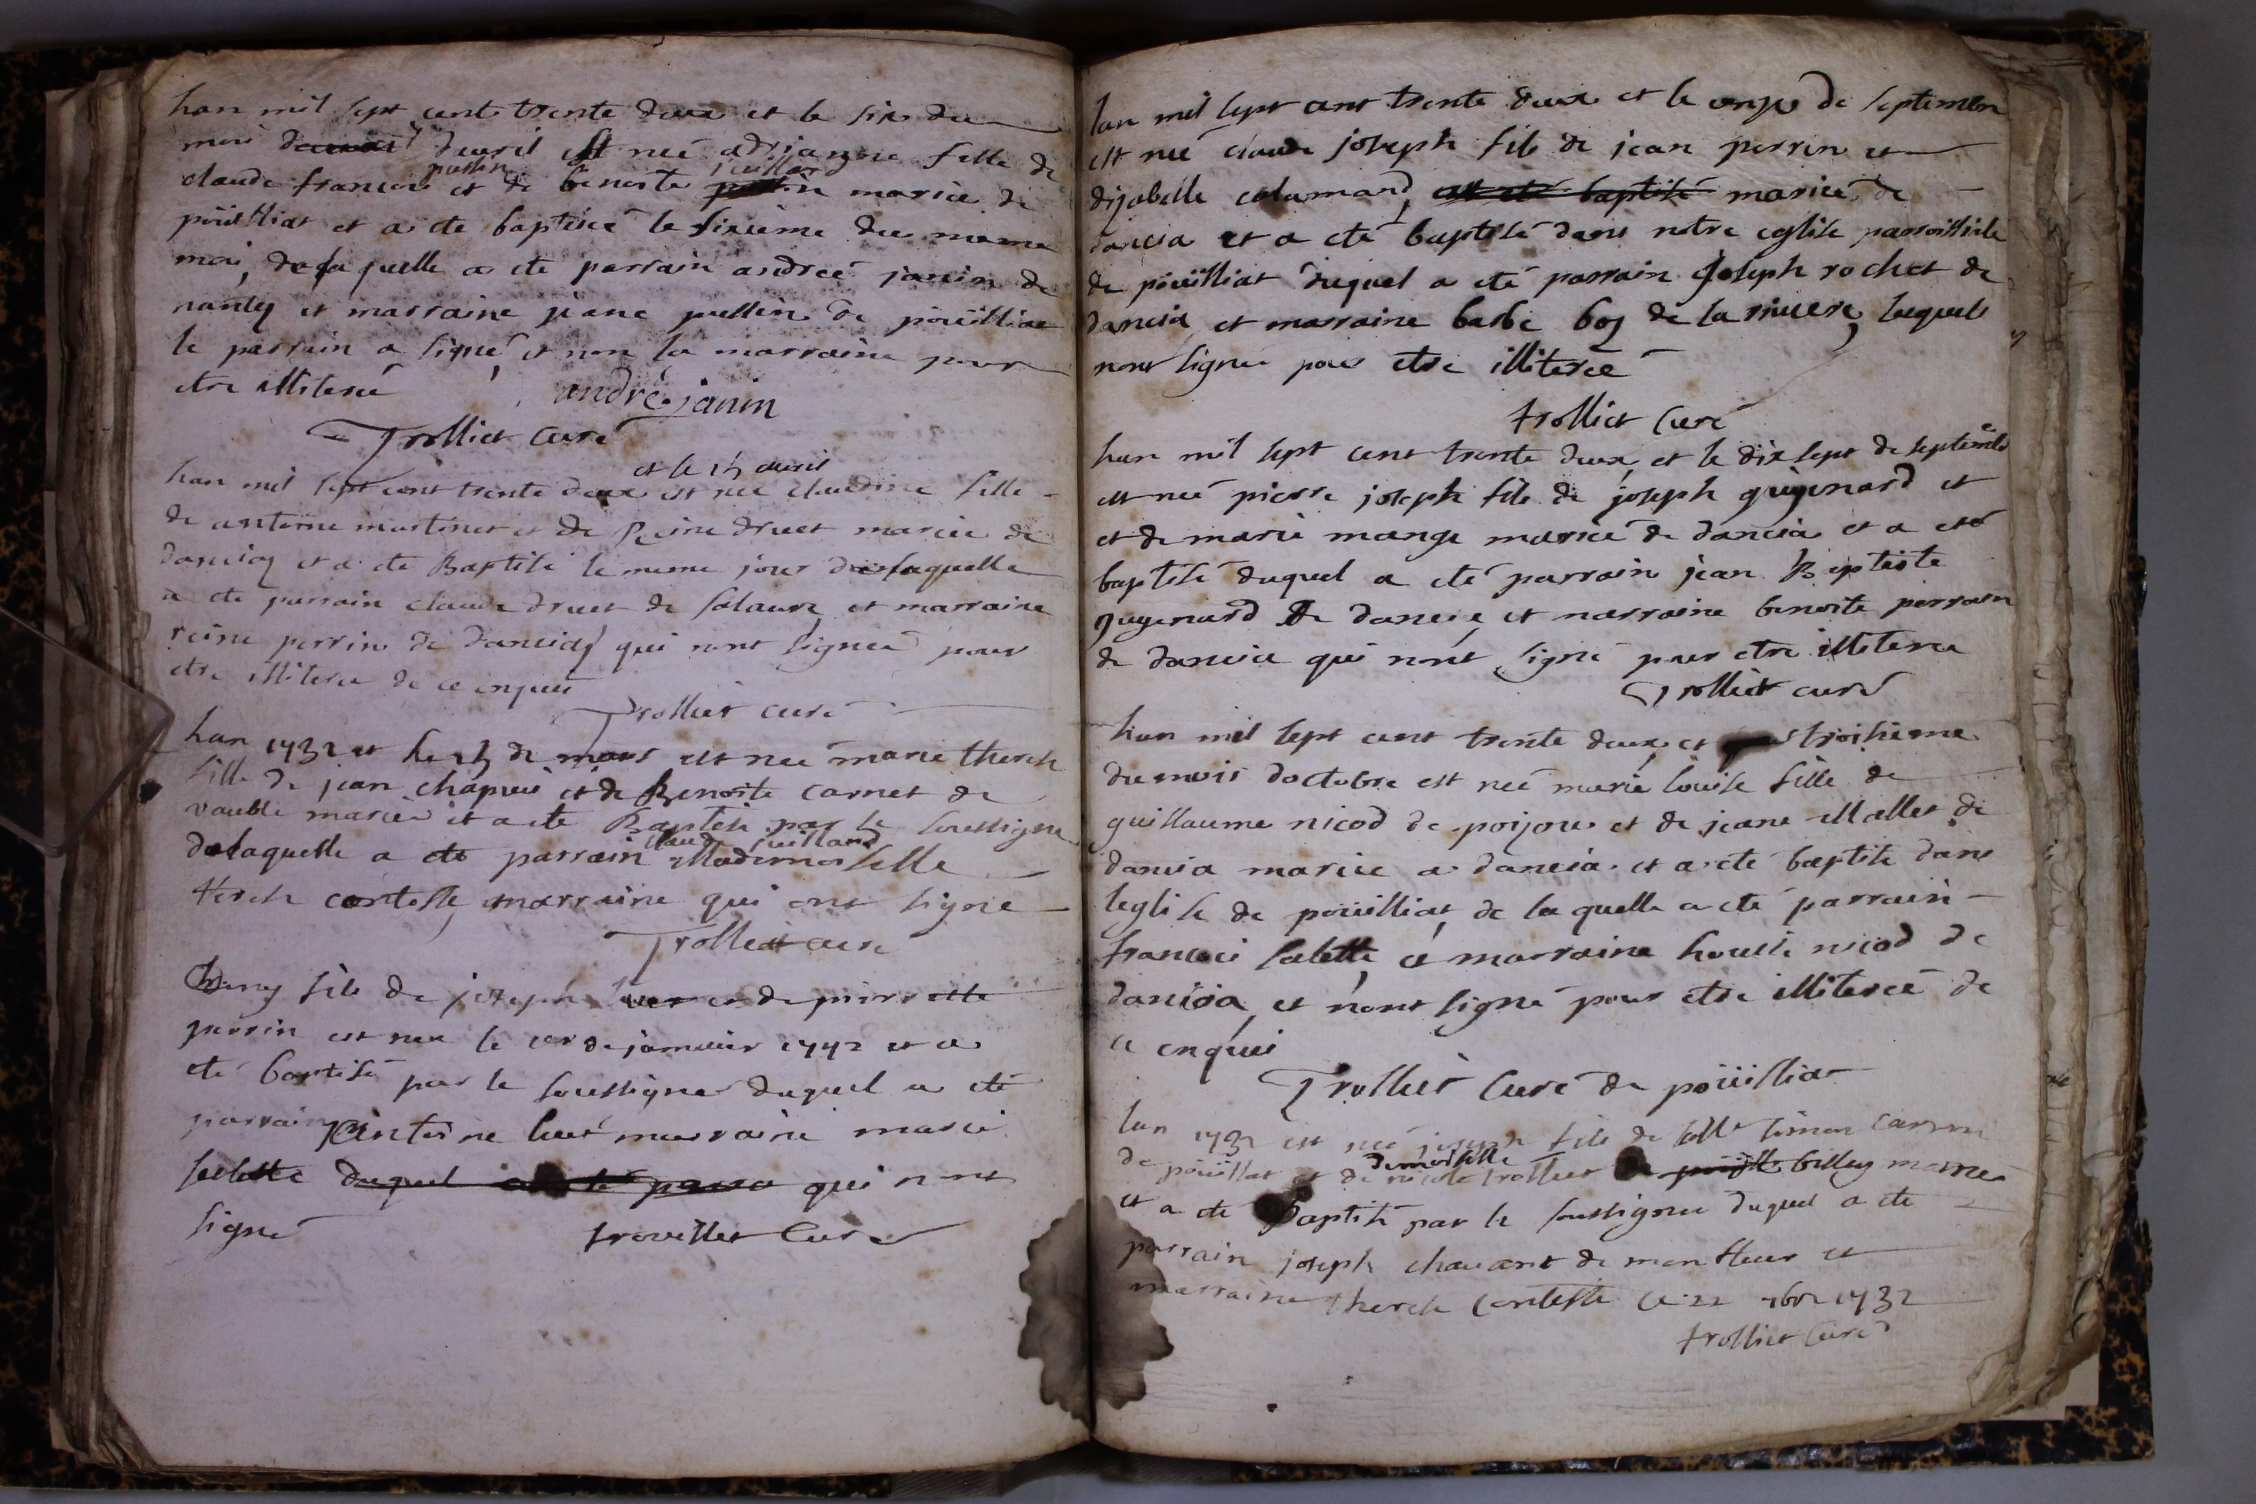 lan mil sept cent trente deux et le six du
mois davril est neé adrianne fille de
claude francois pullin et de benoite juillard mariée de
poüilliat et a ete baptiseé le sixieme du meme
moi, de laquelle a ete parrain andreé janin de
nanty et marraine jeane pullin de poüilliat
le parrain a signé et non la marraine pour
etre illiteré
andré janin
Trolliet curé
et le 15 avril
lan mil sept cent trente deux est neé claudine fille
de antoine martinet et de Reine druet mariée de
dancia et a ete Baptisé le meme jour de laquelle
a ete parrain claude druet de et marraine
reine perrin de dancia qui nont signeé pour
etre illiteré de ce enquis
Trolliet curé
lan 1732 et le 15 de mars est neé marie therese
fille de jean chapuis et de Benoite carnet de
vauble mariée et a ete Baptisé par le soussigne
claude juillard
delaquelle a ete parrain Mademoiselle
terese contesse marraine qui ont signé
Trolliet curé
fils de joseph et de pierrette
perrin est nee le 1er de janvier 1732 et a
eté baptisé par le soussigne duquel a eté
parrain antoine marraine marie
salette duquel a eté parra qui nont
signé trolliet Curé
lan mil sept cent trente deux et le onze de septembre
est neé claude joseph fils de jean perrin et
dizabelle colomard, est eté baptisé mariée de
dancia et a eté baptisé dans notre eglise parroissiale
de poüilliat duquel a eté parrain joseph rochet de
dancia et marraine barbe boz de la riviere, lequels
nont signé pour etre illitereé
trolliet Curé
lan mil sept cent trente deux, et le dix sept de septembre
est neé pierre joseph fils de joseph guyenard et
et de marie mange marieé de dancia et a eté
baptisé duquel a eté parrain jean Baptiste
guyenard de dancia, et marraine benoite perrin
de dancia qui nont signé pour etre illiteré
Trolliet curé
lan mil sept cent trente deux, et troisieme
du mois doctobre est neé marie louise fille de
guillaume nicod de et de jeane Mallet de
dancia mariée a dancia et a eté baptisé dans
leglise de poüilliat, de la quelle a eté parrain
francois salette, et marraine nicod de
dancia, et nont signé pour etre illitereé de
ce enquis
Trolliet Curé de poüilliat
lan 1732 est neé joseph fils de simon carron
de poüilliat et de demoiselle nicole trolliet billey marieé
et a eté Baptisé par le soussigné duquel a ete
parrain joseph chavant de monfleur et
marraine therese Contesse ce 22 7bre 1732
trolliet Curé